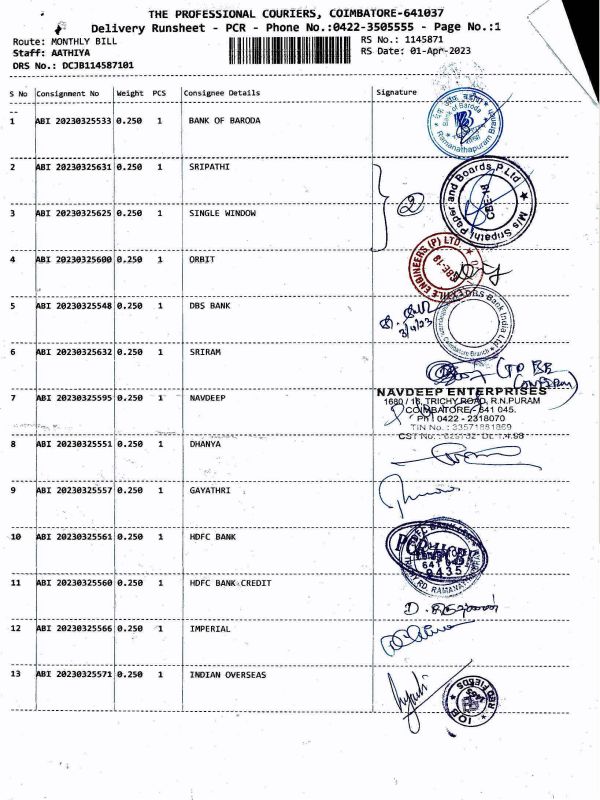 THE PROFESSIONAL COURIERS, COIMBATORE-641037
Delivery Runsheet - PCR - Phone No.:0422-3505555 - Page No.:1
Route: MONTHLY BILL
RS No.: 1145871
Staff: AATHIYA
RS Date: 01-Apr-2023
DRS No.: DCJB114587101
S No Consignment No Weight PCS Consignee Details Signature
1 ABI 20230325533 0.250 1 BANK OF BARODA
Bank of Baroda
Ramanathapuram
2 ABI 20230325631 0.250 1 SRIPATHI
M/s Sripathi Paper and Boards P.Ltd
CBE-18
2
3 ABI 20230325625 0.250 1 SINGLE WINDOW
4 ABI 20230325600 0.250 1 ORBIT
ENGINEERS (P) LTD.
CBE-18
5 ABI 20230325548 0.250 1 DBS BANK
DBS Bank India Ltd
Coimbatore Branch
3/4/23
6 ABI 20230325632 0.250 1 SRIRAM
7 ABI 20230325595 0.250 1 NAVDEEP
NAVDEEP ENTERPRISES
1680 / 16, TRICHY ROAD, R.N.PURAM
COIMBATORE - 641 045.
PH : 0422 - 2318070
TIN No. : 33571881869
8 ABI 20230325551 0.250 1 DHANYA
9 ABI 20230325557 0.250 1 GAYATHRI
10 ABI 20230325561 0.250 1 HDFC BANK
11 ABI 20230325560 0.250 1 HDFC BANK-CREDIT
12 ABI 20230325566 0.250 1 IMPERIAL
13 ABI 20230325571 0.250 1 INDIAN OVERSEAS
IOB